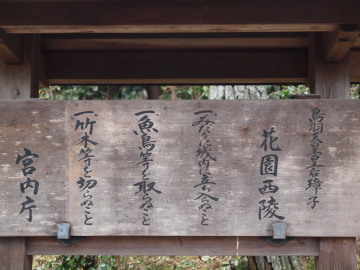 鳥羽天皇皇后璋子
花園西陵
一みだりに域内に立ち入らぬこと
一魚鳥等を取らぬこと
一竹木等を切らぬこと
宮内庁